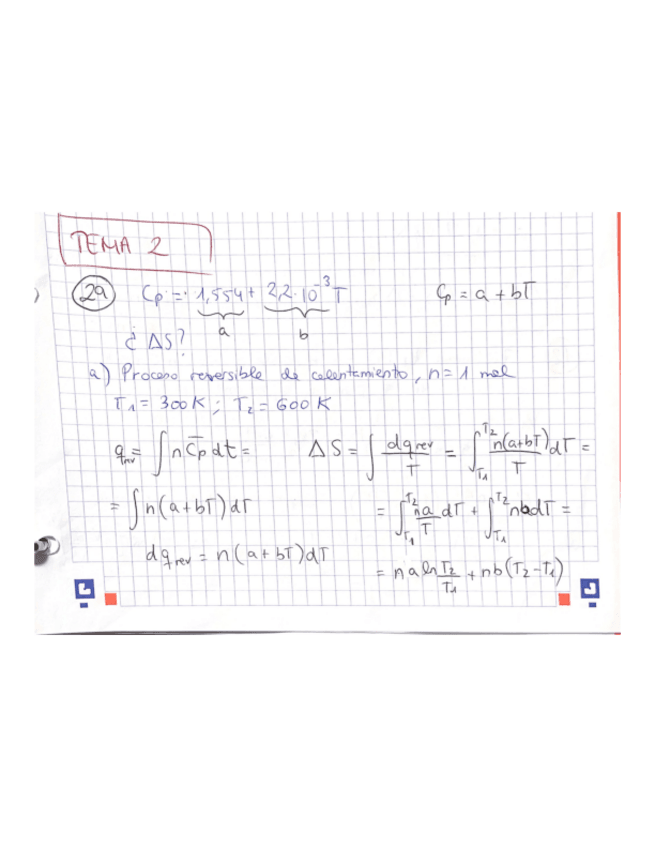 TEMA 2
29 Cp = 1,554 + 2,2·10⁻³T Cp = a + bT
a b
¿ΔS?
a) Proceso reversible de calentamiento, n = 1 mol
T₁ = 300K ; T₂ = 600K
q_rev = ∫ n C̄p dt = ΔS = ∫ dq_rev/T = ∫_T₁^T₂ n(a+bT)/T dT =
= ∫ n(a+bT)dT = ∫_T₁^T₂ na/T dT + ∫_T₁^T₂ nbdT =
dq_rev = n(a+bT)dT
= n a ln T₂/T₁ + nb(T₂-T₁)